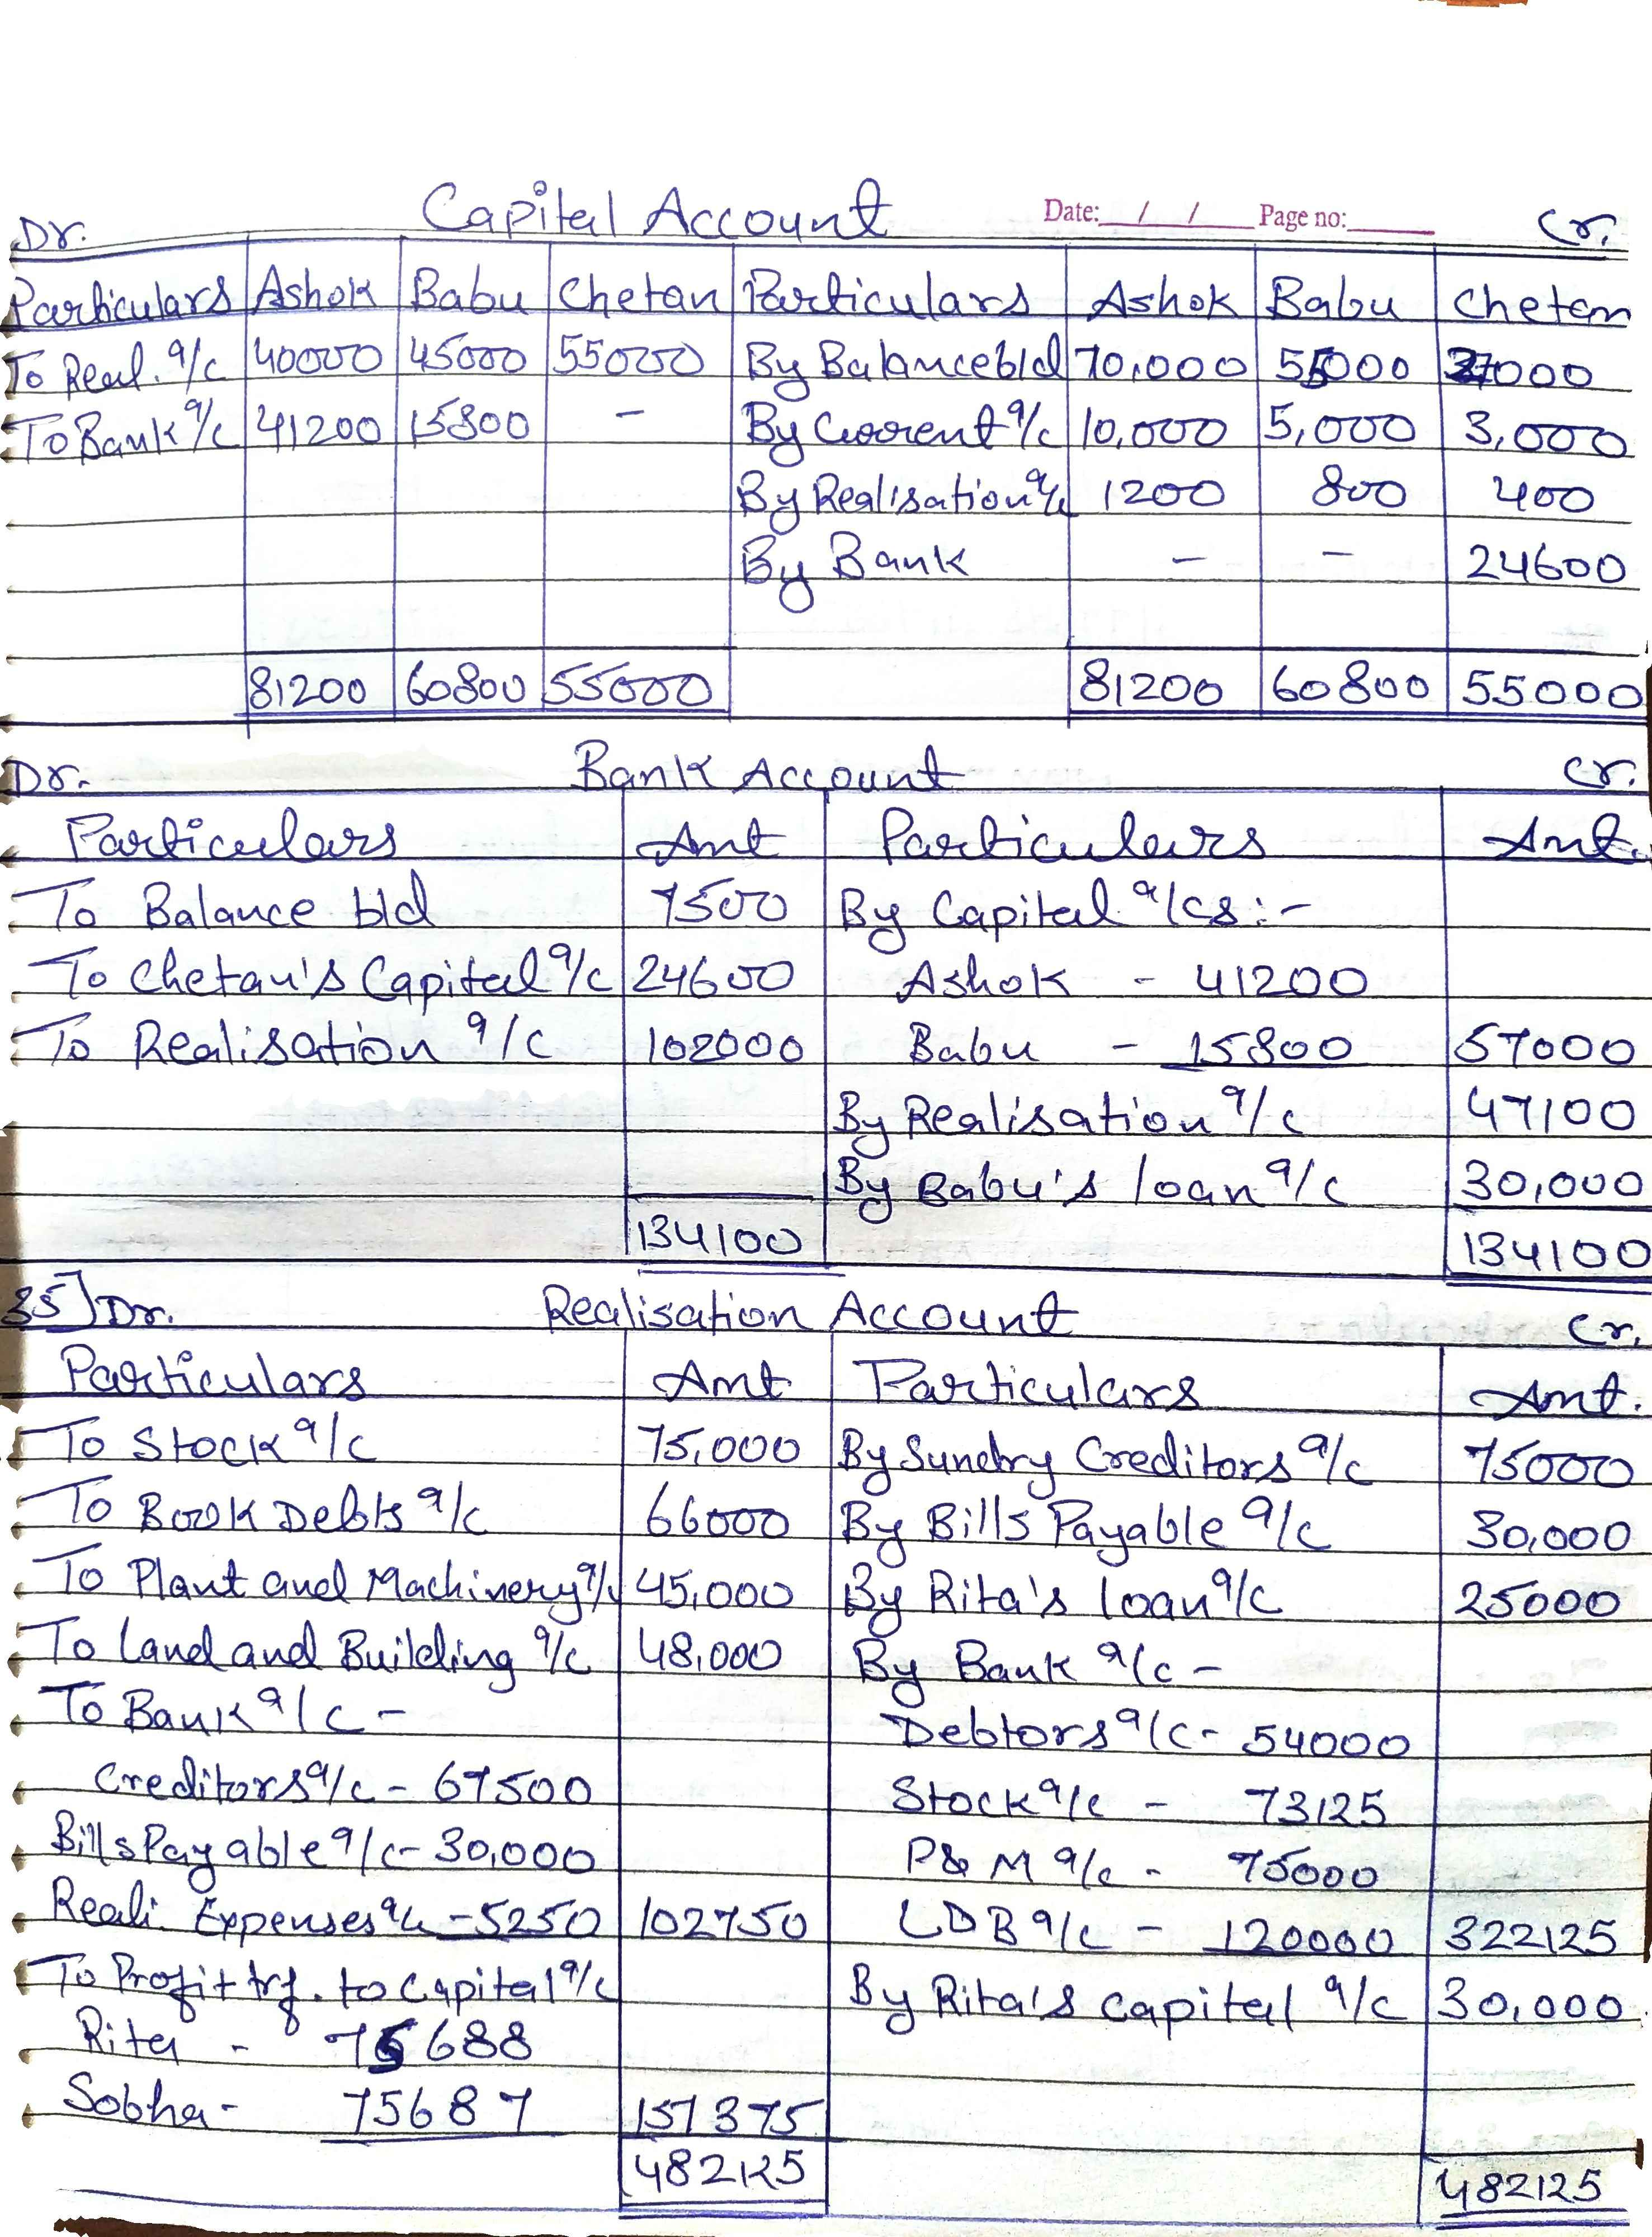 Capital Account
Date: / / Page no:
Dr. Cr.
Particulars Ashok Babu Chetan Particulars Ashok Babu Chetan
To Real. a/c 40000 45000 55000 By Balance b/d 70,000 55000 27000
To Bank a/c 41200 15800 - By Current a/c 10,000 5,000 3,000
By Realisation a/c 1200 800 400
By Bank - - 24600
81200 60800 55000 81200 60800 55000
Dr. Bank Account Cr.
Particulars Amt Particulars Amt.
To Balance b/d 7500 By Capital a/cs :-
To Chetan's Capital a/c 24600 Ashok - 41200
To Realisation a/c 102000 Babu - 15800 57000
By Realisation a/c 47100
By Babu's loan a/c 30,000
134100 134100
35] Dr. Realisation Account Cr.
Particulars Amt Particulars Amt.
To Stock a/c 75,000 By Sundry Creditors a/c 75000
To Book Debts a/c 66000 By Bills Payable a/c 30,000
To Plant and Machinery a/c 45,000 By Rita's loan a/c 25000
To Land and Building a/c 48,000 By Bank a/c -
To Bank a/c - Debtors a/c - 54000
Creditors a/c - 67500 Stock a/c - 73125
Bills Payable a/c - 30,000 P & M a/c - 75000
Reali. Expenses a/c - 5250 102750 LDB a/c - 120000 322125
To Profit trf. to Capital a/c By Rita's Capital a/c 30,000
Rita - 75688
Sobha - 75687 151375
482125 482125